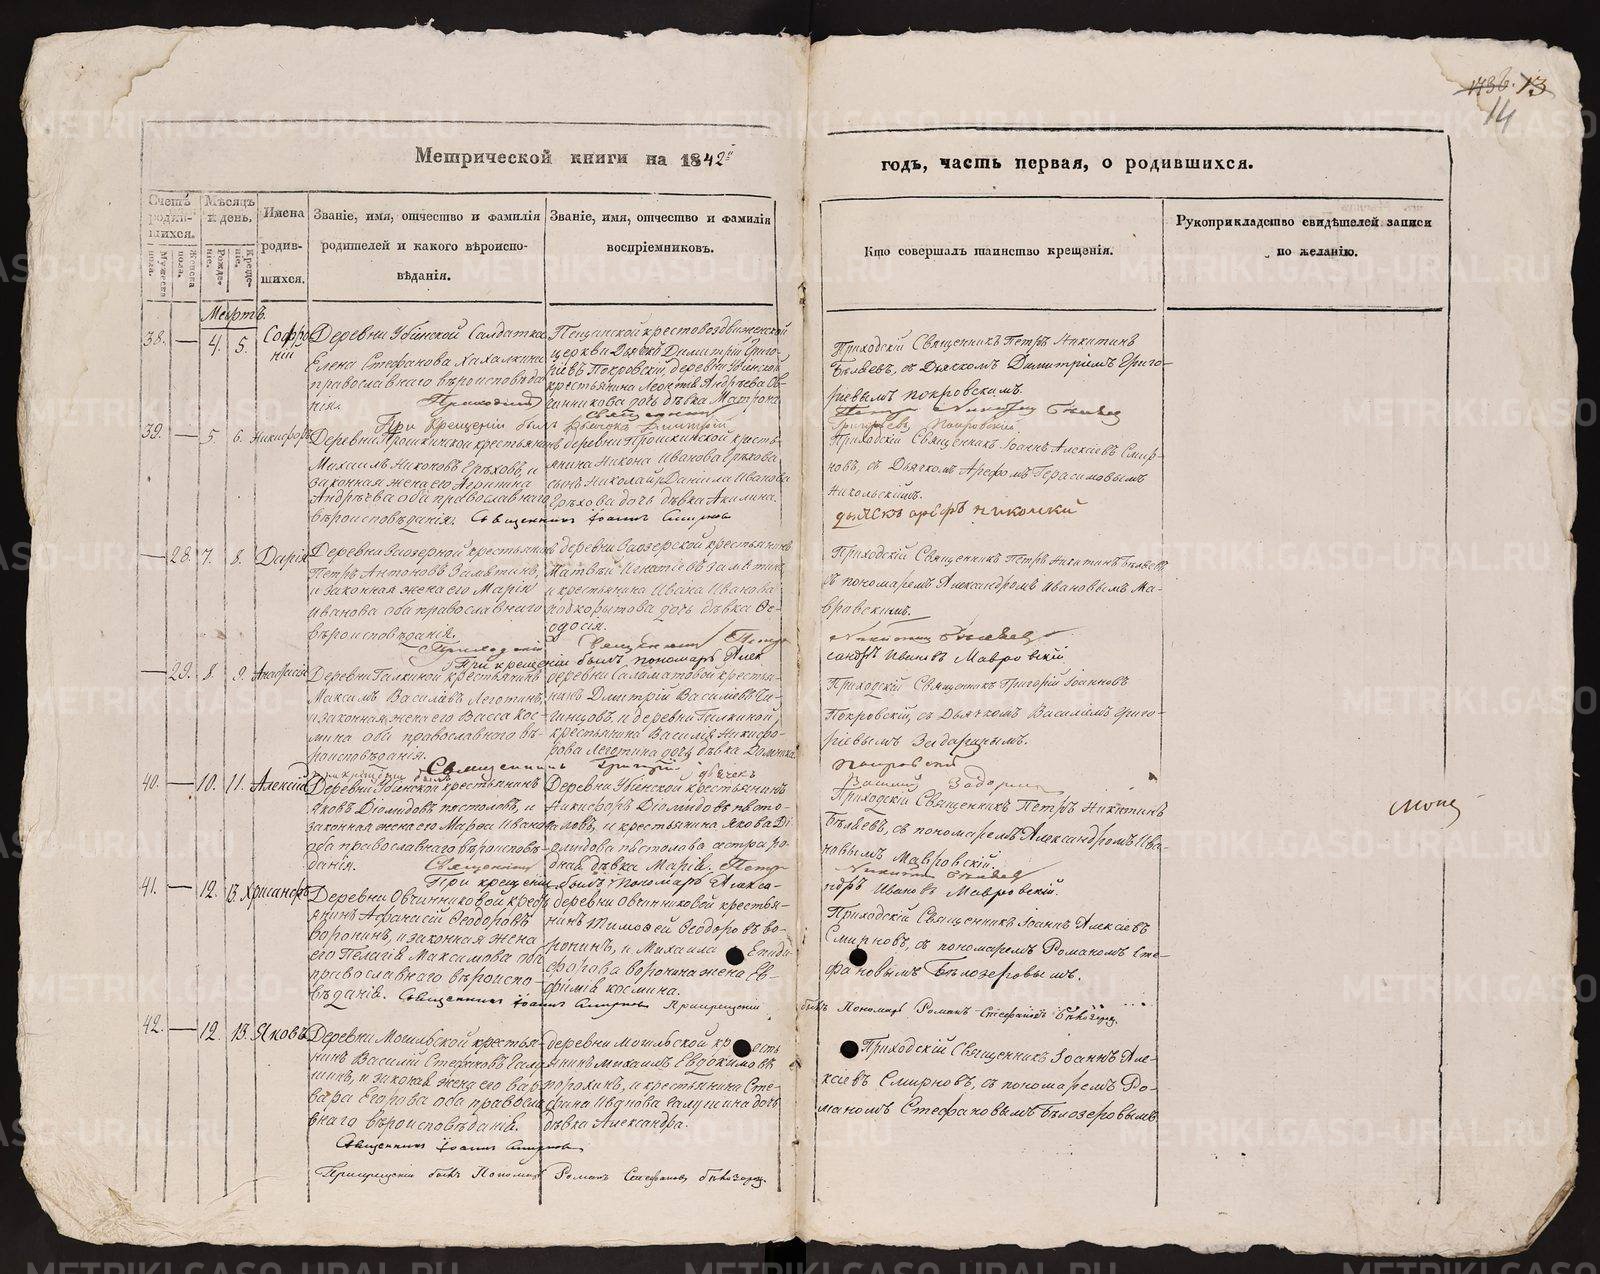 1736. 13
14
Метрической книги на 1842й годъ, часть первая, о родившихся.
Счетъ родившихся.
Мужеска пола.
Женска пола.
Мѣсяцъ и день.
Рожденіе.
Крещеніе.
Имена родившихся.
Званіе, имя, отчество и фамилія родителей и какого вѣроисповѣданія.
Званіе, имя, отчество и фамилія воспріемниковъ.
Кто совершалъ таинство крещенія.
Рукоприкладство свидѣтелей записи по желанію.
Мартъ.
38. — 4. 5. Софроній
Деревни Убинской Салдатка
Елена Стефанова
православнаго вѣроисповѣданія.
Песчанской крестовоздвиженской
церкви Дьячекъ Димитрій Григоріевъ Покровскій, деревни Убинской
крестьянина Леонтія Андрѣева Овчинникова дочь дѣвка Матрона
Приходскій Священникъ Петръ Никитинъ
Бѣляевъ, съ Дьячкомъ Димитріемъ Григоріевымъ Покровскимъ.
Приходскій Священникъ Петръ Никитинъ Бѣляевъ
При крещеніи былъ Дьячокъ Димитрій Григорьевъ Покровскій.
39. — 5 6. Никифоръ
Деревни Прошкинской крестьянинъ
Михаилъ Никоновъ Грѣховъ, и
законная жена его Агрипина
Андрѣева оба православнаго
вѣроисповѣданія. Священникъ Іоаннъ Смирновъ
деревни Прошкинской крестьянина Никона Иванова Грѣхова
сынъ Николай, и Даніила Иванова
Грѣхова дочь дѣвка Акилина.
Приходскій Священникъ Іоаннъ Алексіевъ Смирновъ, съ Дьячкомъ Арефомъ Герасимовымъ
Никольскимъ.
дьячекъ Арефъ Николский
— 28. 7. 8. Дарія
Деревни Заозерной крестьянинъ
Петръ Антоновъ Замятинъ,
и законная жена его Марія
Иванова оба православнаго
вѣроисповѣданія.
деревни Заозерской крестьянинъ
Матвѣй Игнатіевъ Замятинъ,
и крестьянина Ивана Иванова
Подкорытова дочь дѣвка Ѳеодосія.
Приходскій Священникъ Петръ Никитинъ Бѣляевъ
съ пономаремъ Александромъ Ивановымъ Мавровскимъ.
Приходскій Священникъ Петръ Никитинъ Бѣляевъ
При крещеніи былъ пономарь Александръ Ивановъ Мавровскій
— 29. 8. 9. Анастасія
Деревни Галкиной крестьянинъ
Максимъ Василіевъ Леготинъ,
и законная жена его Васса Космина оба православнаго вѣроисповѣданія.
деревни Саламатовой крестьянинъ Дмитрій Василіевъ
и деревни Галкиной,
крестьянина Василія Никифорова Леготина дочь дѣвка Домника
Приходскій Священникъ Григорій Іоанновъ
Покровскій, съ Дьячкомъ Василіемъ Григоріевымъ Задоринымъ.
Священникъ Григорій Покровскій
При крещеніи былъ дьячекъ Василій Задоринъ
40. — 10. 11. Алексій
Деревни Убинской крестьянинъ
Яковъ Діомидовъ Пустоловъ, и
законная жена его Марѳа Иванова
оба православнаго вѣроисповѣданія.
Деревни Убинской крестьянинъ
Никифоръ Діомидовъ Пустоловъ, и крестьянина Якова Діомидова Пустолова сестра родная дѣвка Марія.
Приходскій Священникъ Петръ Никитинъ
Бѣляевъ, съ пономаремъ Александромъ Ивановымъ Мавровскій.
Священникъ Петръ Никитинъ Бѣляевъ
При крещеніи былъ Пономарь Александръ Ивановъ Мавровскій.
41. — 12. 13. Хрисанфъ
Деревни Овчинниковой крестьянинъ Афанасій Ѳеодоровъ
Воронинъ, и законная жена
его Пелагія Максимова оба
православнаго вѣроисповѣданія. Священникъ Іоаннъ Смирновъ
деревни Овчинниковой крестьянинъ Тимоѳей Ѳеодоровъ Воронинъ, и Михаила
Воронина жена Евфимія Космина.
Приходскій Священникъ Іоаннъ Алексіевъ
Смирновъ, съ пономаремъ Романомъ Стефановымъ Бѣлозеровымъ.
При крещеніи былъ Пономарь Романъ Стефановъ Бѣлозеровъ
42. — 12. 13. Яковъ
Деревни Мошьской крестьянинъ Василій Стефановъ Галушинъ, и законная жена его Варвара Егорова оба православнаго вѣроисповѣданія.
Священникъ Іоаннъ Смирновъ
деревни Мошьской крестьянинъ Михаилъ Евдокимовъ
Порохинъ, и крестьянина Стефана Иванова Галушина дочь
дѣвка Александра.
Приходскій Священникъ Іоаннъ Алексіевъ Смирновъ, съ пономаремъ Романомъ Стефановымъ Бѣлозеровымъ
При крещеніи былъ Пономарь Романъ Стефановъ Бѣлозеровъ
METRIKI.GASO-URAL.RU